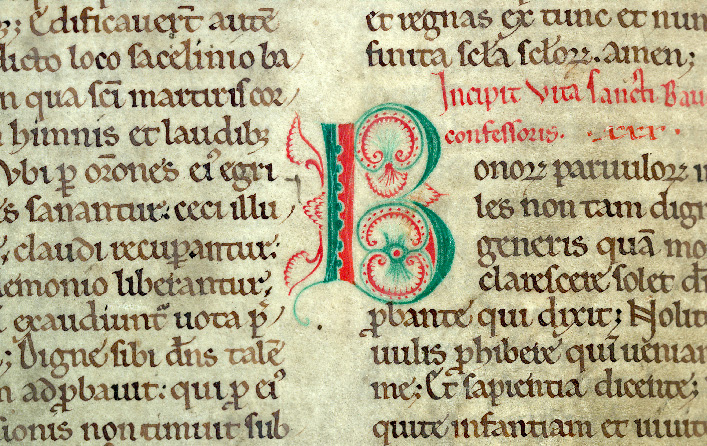 Edificauer̄t autē
dicto loco sacelinio ba
n qua sc̄i martiris cor
himnis et laudib;
Vbi ꝑ or̄ones eiꝰ egri
s sanantur: ceci illu
claudi recuperantur:
emonio liberantur,
exaudiunt̄ uota ꝑ
; Digne sibi dn̄s talē
n adꝓbauit: qui ꝑ eiꝰ
sionis non timuit sub
et regnas ex tunc et nun
finita sc̄la sc̄loꝝ. amen;
Incipit vita sancti Bau
confessoris.
Bonoꝝ paruuloꝝ
les non tam dign
generis quā mo
clarescere solet
ꝓbante qui dixit; Nolit
uulis ꝓhibete quī ueniar
me; Et sapientia dicente;
quite infantiam et uiuit